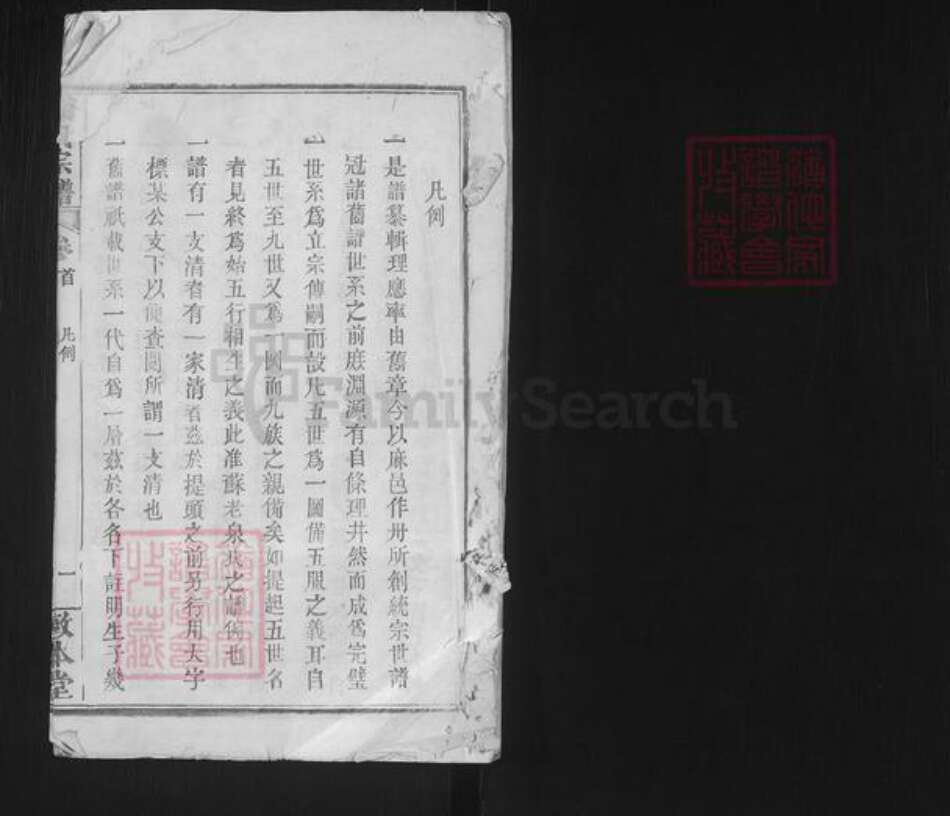 凡例
一是譜纂輯理應率由舊章今以麻邑作冊所創統宗世譜
冠諸舊譜世系之前庶淵源有自條理井然而成為完璧
一世系為立宗傳嗣而設凡五世為一圖備五服之義耳自
五世至九世又為一圖而九族之親備矣如提起五世名
者見終為始五行相生之義此准蘇老泉氏之譜例也
一譜有一支清者有一家清者茲於提頭之前另行用大字
標某公支下以便查閱所謂一支清也
一舊譜祇載世系一代自為一層茲於各名下註明生子幾
宗譜
卷首
凡例
一
敬本堂
FamilySearch
譜學會
收藏
譜學會
收藏